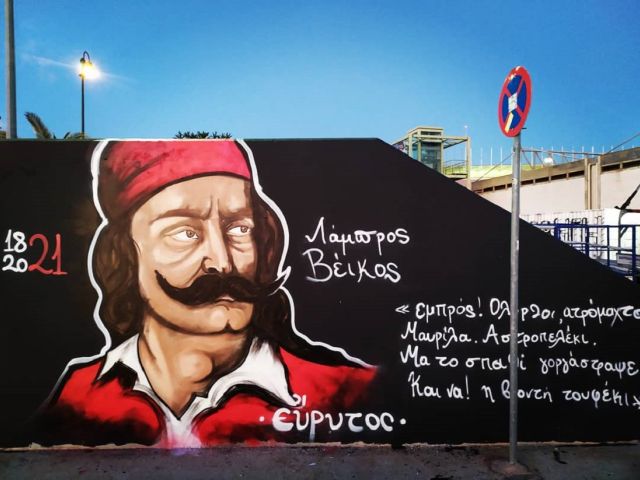 18
20 21
Λάμπρος
Βέικος
« εμπρός! Ολόρθοι, ατρόμαχτο
Μαυρίλα. Αστροπελέκι.
Μα το σπαθί γοργάστραψε
Και να! η βροντή τουφέκι
·εὔρυτος·